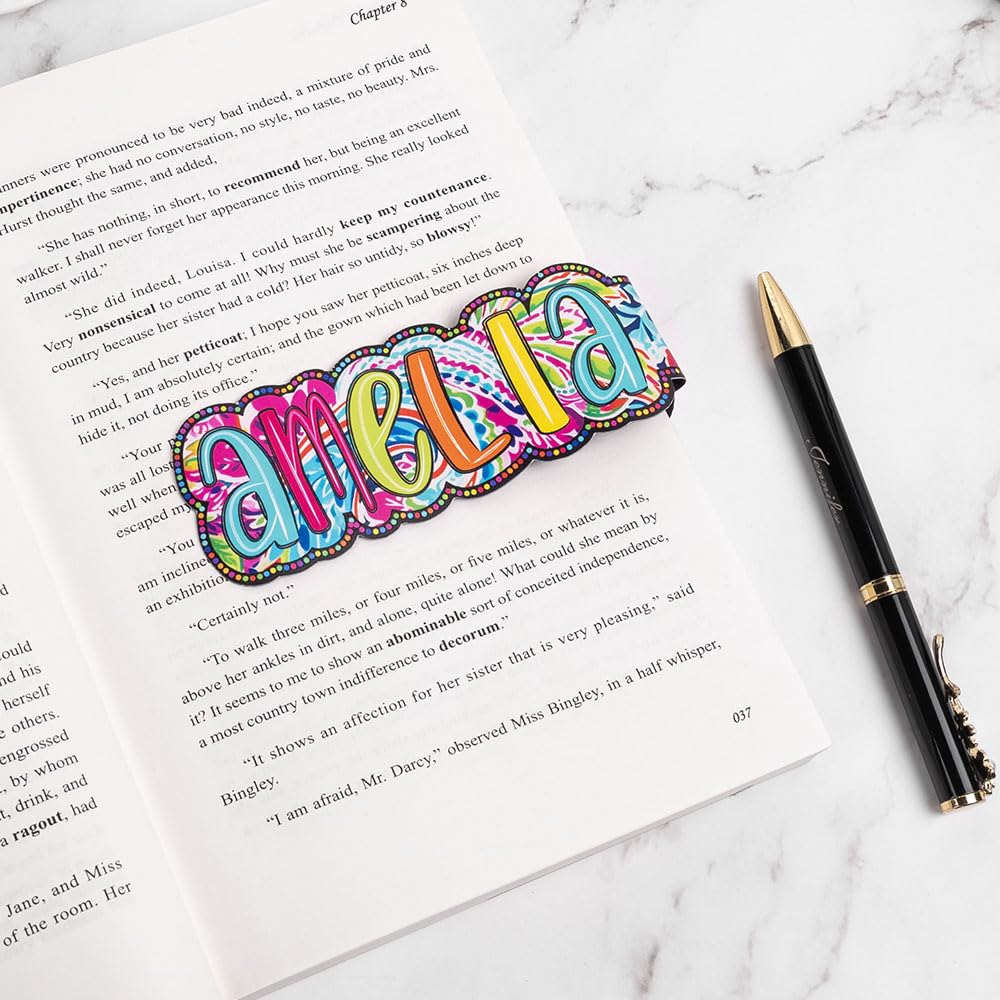 Chapter 8
nners were pronounced to be very bad indeed, a mixture of pride and
mpertinence; she had no conversation, no style, no taste, no beauty. Mrs.
Hurst thought the same, and added,
“She has nothing, in short, to recommend her, but being an excellent
walker. I shall never forget her appearance this morning. She really looked
almost wild.”
“She did indeed, Louisa. I could hardly keep my countenance.
Very nonsensical to come at all! Why must she be scampering about the
country because her sister had a cold? Her hair so untidy, so blowsy!”
“Yes, and her petticoat; I hope you saw her petticoat, six inches deep
in mud, I am absolutely certain; and the gown which had been let down to
hide it, not doing its office.”
“Your
was all lost
well when
escaped my
“You
am inclin
an exhibition
“Certainly not.”
“To walk three miles, or four miles, or five miles, or whatever it is,
above her ankles in dirt, and alone, quite alone! What could she mean by
it? It seems to me to show an abominable sort of conceited independence,
a most country town indifference to decorum.”
“It shows an affection for her sister that is very pleasing,” said
Bingley.
“I am afraid, Mr. Darcy,” observed Miss Bingley, in a half whisper,
037
amelia
ould
nd his
herself
e others.
engrossed
, by whom
t, drink, and
a ragout, had
Jane, and Miss
of the room. Her
Jennifer